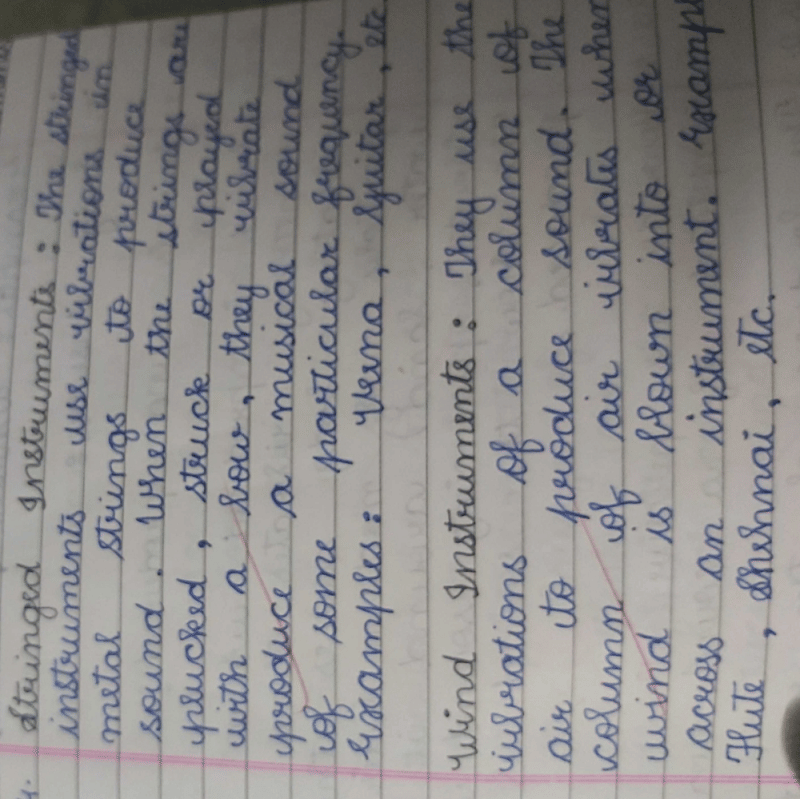 Stringed Instruments : The stringed
instruments use vibrations in
metal strings to produce
sound. When the strings are
plucked, struck or played
with a bow, they vibrate
produce a musical sound
of some particular frequency.
Examples: Veena, Guitar, etc
Wind Instruments : They use the
vibrations of a column of
air to produce sound. The
column of air vibrates when
wind is blown into or
across an instrument. Exampl
Flute, Shehnai, etc.